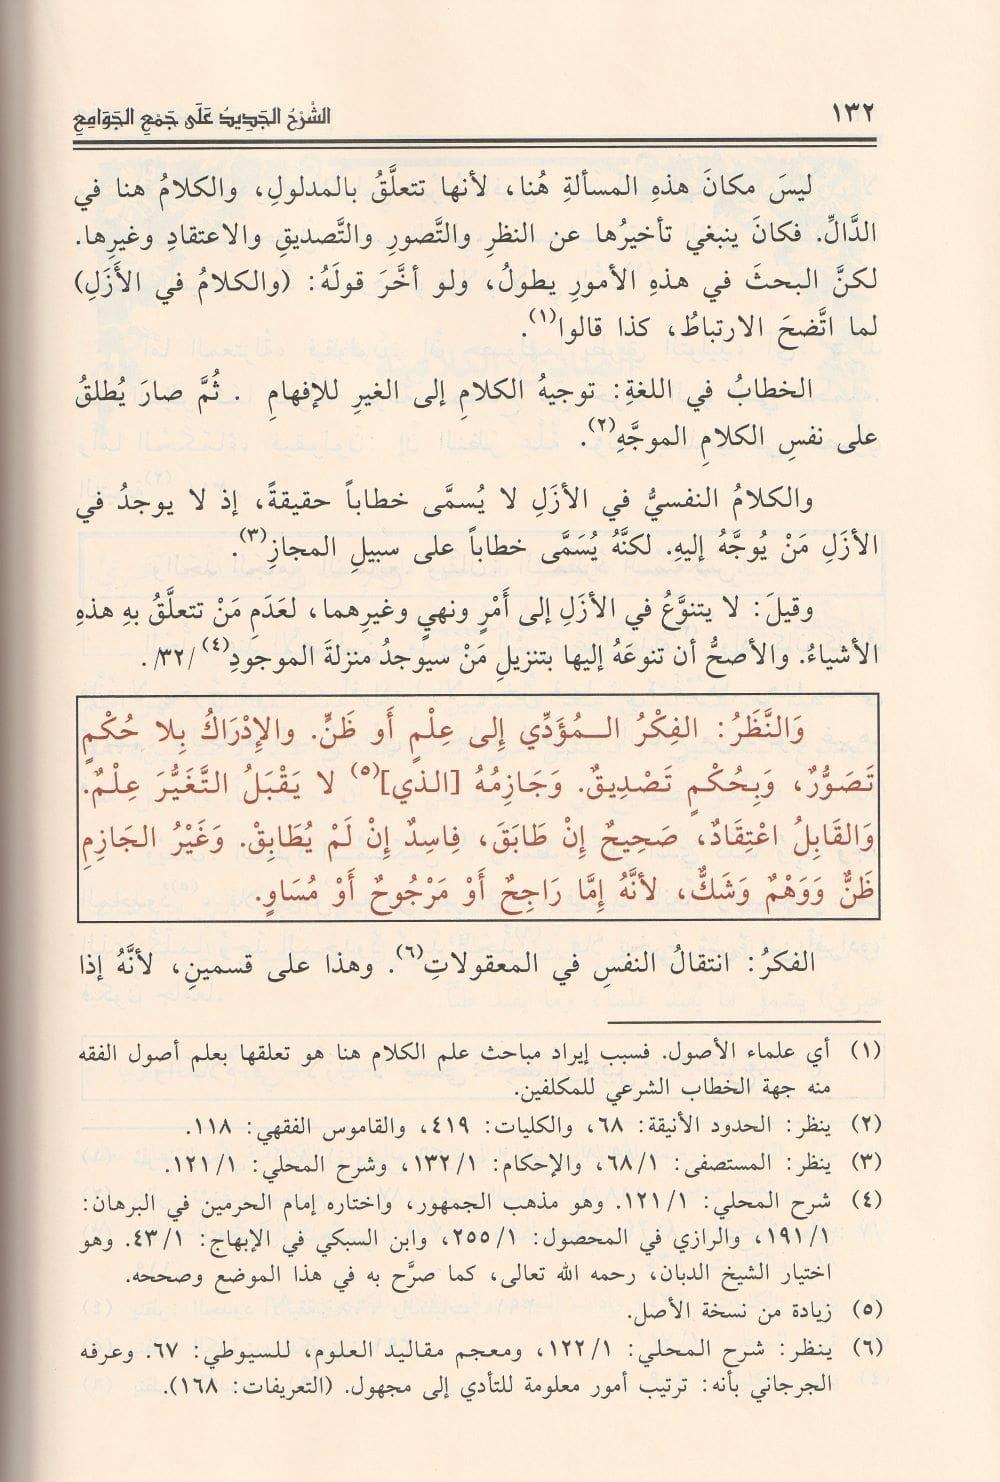 ١٣٢
الشَّرْحُ الجَدِيدُ عَلَى جَمْعِ الجَوَامِعِ
ليسَ مكانَ هذهِ المسألةِ هُنا، لأنها تتعلَّقُ بالمدلولِ، والكلامُ هنا في
الدَّالِّ. فكانَ ينبغي تأخيرُها عن النظرِ والتَّصورِ والتَّصديقِ والاعتقادِ وغيرِها.
لكنَّ البحثَ في هذهِ الأمورِ يطولُ، ولو أخَّرَ قولَهُ: (والكلامُ في الأَزَلِ)
لما اتَّضحَ الارتباطُ، كذا قالوا(١).
الخطابُ في اللغةِ: توجيهُ الكلامِ إلى الغيرِ للإفهامِ . ثُمَّ صارَ يُطلقُ
على نفسِ الكلامِ الموجَّهِ(٢).
والكلامُ النفسيُّ في الأزَلِ لا يُسمَّى خطاباً حقيقةً، إذ لا يوجدُ في
الأزَلِ مَنْ يُوجَّهُ إليهِ. لكنَّهُ يُسَمَّى خطاباً على سبيلِ المجازِ(٣).
وقيلَ: لا يتنوَّعُ في الأزَلِ إلى أَمْرٍ ونهيٍ وغيرِهما، لعَدَمِ مَنْ تتعلَّقُ بهِ هذهِ
الأشياءُ. والأصحُّ أن تنوعَهُ إليها بتنزيلِ مَنْ سيوجدُ منزلةَ الموجودِ(٤) /٣٢/.
وَالنَّظَرُ: الفِكْرُ المُؤَدِّي إِلى عِلْمٍ أَو ظَنٍّ. والإِدْرَاكُ بِلا حُكْمٍ
تَصَوُّرٌ، وَبِحُكْمٍ تَصْدِيقٌ. وَجَازِمُهُ [الذي](٥) لا يَقْبَلُ التَّغَيُّرَ عِلْمٌ.
وَالقَابِلُ اعْتِقَادٌ، صَحِيحٌ إِنْ طَابَقَ، فِاسِدٌ إِنْ لَمْ يُطَابِقْ. وَغَيْرُ الجَازِمِ
ظَنٌّ وَوَهْمٌ وَشَكٌّ، لأنَّهُ إِمَّا رَاجِحٌ أَوْ مَرْجُوحٌ أَوْ مُسَاوٍ.
الفكرُ: انتقالُ النفسِ في المعقولاتِ(٦). وهذا على قسمينِ، لأنَّهُ إذا
(١) أي علماء الأصول. فسبب إيراد مباحث علم الكلام هنا هو تعلقها بعلم أصول الفقه
منه جهة الخطاب الشرعي للمكلفين.
(٢) ينظر: الحدود الأنيقة: ٦٨، والكليات: ٤١٩، والقاموس الفقهي: ١١٨.
(٣) ينظر: المستصفى: ٦٨/١، والإحكام: ١٣٢/١، وشرح المحلي: ١٢١/١.
(٤) شرح المحلي: ١٢١/١. وهو مذهب الجمهور، واختاره إمام الحرمين في البرهان:
١٩١/١، والرازي في المحصول: ٢٥٥/١، وابن السبكي في الإبهاج: ٤٣/١. وهو
اختيار الشيخ الدبان، رحمه الله تعالى، كما صرَّح به في هذا الموضع وصححه.
(٥) زيادة من نسخة الأصل.
(٦) ينظر: شرح المحلي: ١٢٢/١، ومعجم مقاليد العلوم، للسيوطي: ٦٧. وعرفه
الجرجاني بأنه: ترتيب أمور معلومة للتأدي إلى مجهول. (التعريفات: ١٦٨).